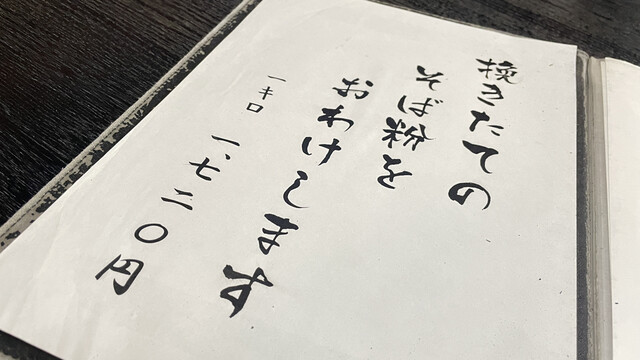 挽きたての
そば粉を
おわけします
一キロ
一、七二〇円